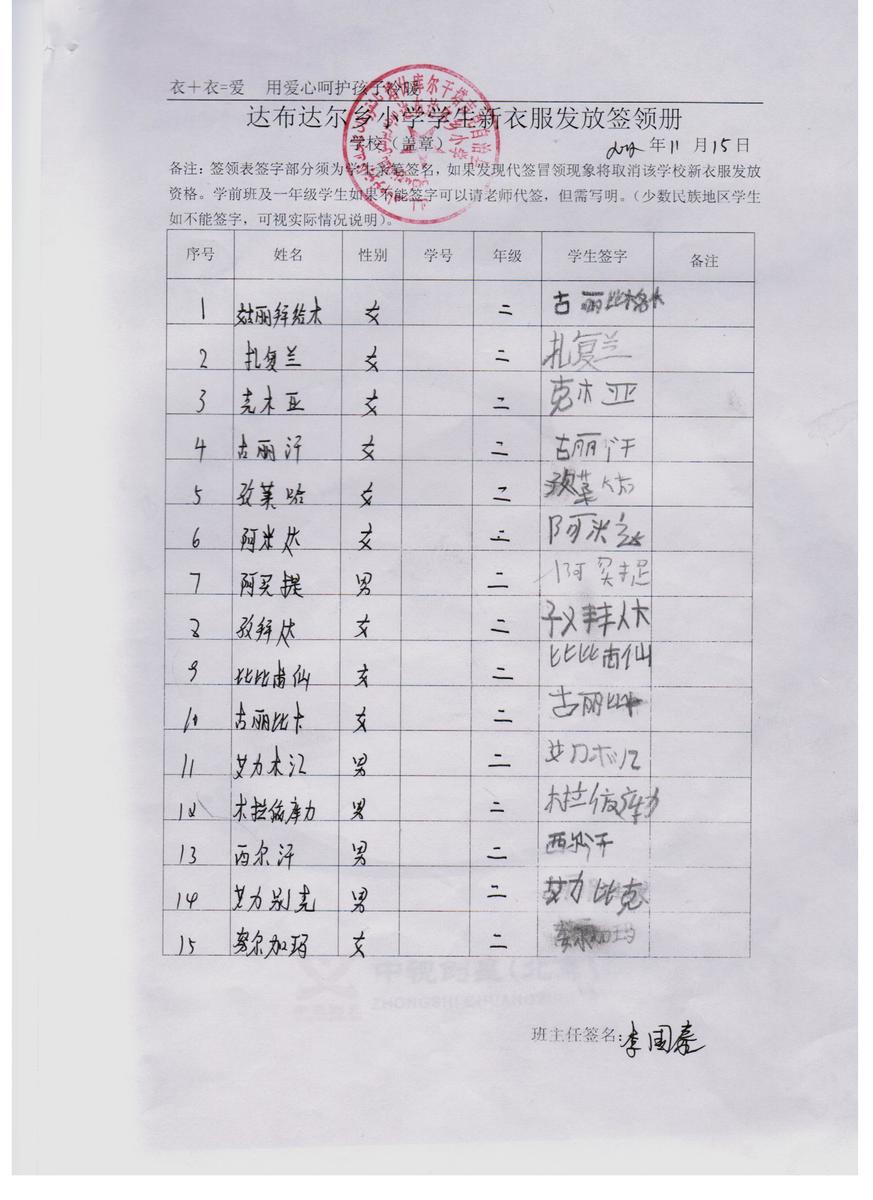 衣＋衣=爱 用爱心呵护孩子冷暖
达布达尔乡小学学生新衣服发放签领册
学校（盖章） 年11月15日
备注：签领表签字部分须为学生亲笔签名，如果发现代签冒领现象将取消该学校新衣服发放
资格。学前班及一年级学生如果不能签字可以请老师代签，但需写明。（少数民族地区学生
如不能签字，可视实际情况说明）。
序号 姓名 性别 学号 年级 学生签字 备注
1 女 二 古丽比
2 扎复兰 女 二 扎复兰
3 克木亚 女 二 克木亚
4 古丽汗 女 二 古丽汗
5 孜莱哈 女 二
6 阿米达 女 二 阿米达
7 阿买提 男 二 阿买提
8 孜拜达 女 二
9 比比甫仙 女 二 比比甫仙
10 古丽比卡 女 二 古丽比卡
11 艾力木江 男 二 艾力木江
12 木拉依库力 男 二 木拉依库力
13 西尔汗 男 二 西尔汗
14 艾力别克 男 二 艾力比克
15 努尔加玛 女 二 努尔加玛
班主任签名：李国泰